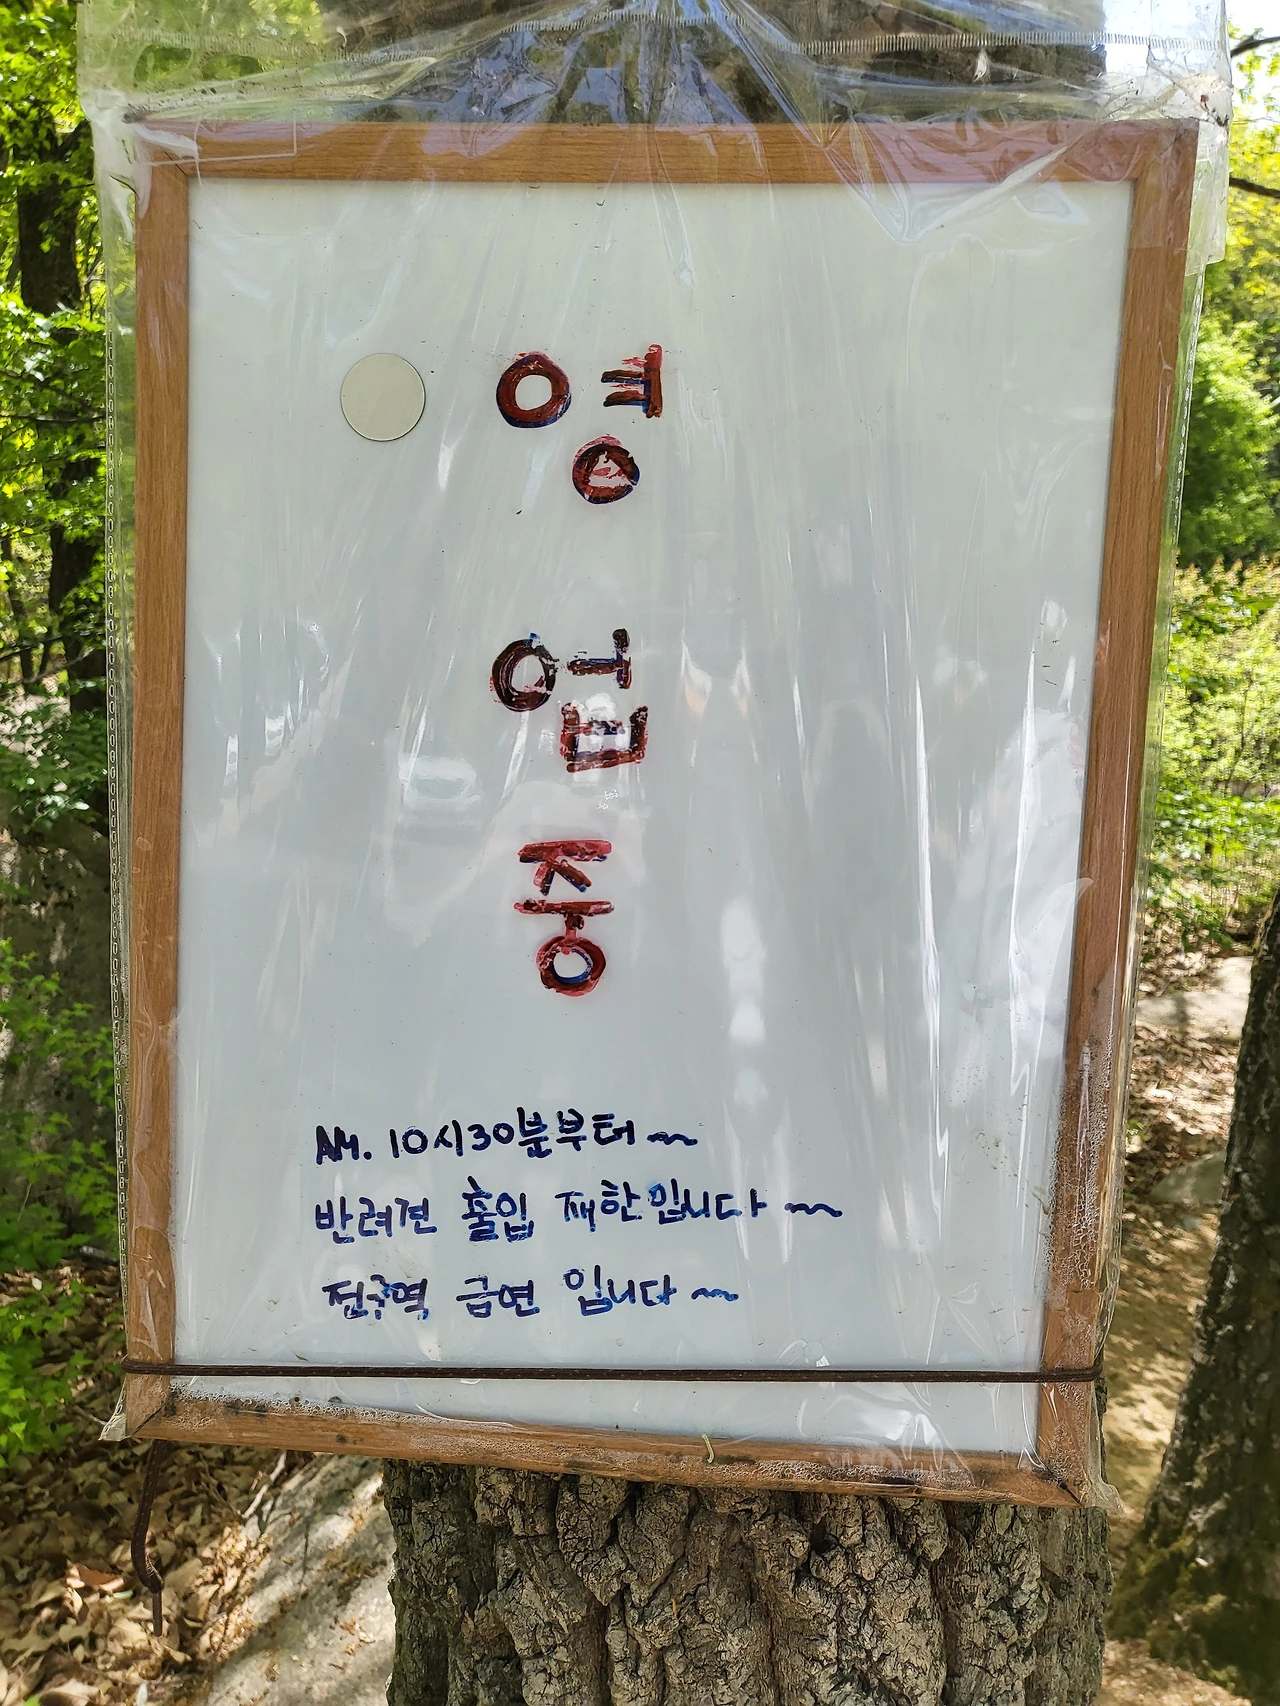 영
업
중
AM. 10시30분부터~
반려견 출입 제한입니다~
전구역 금연 입니다~